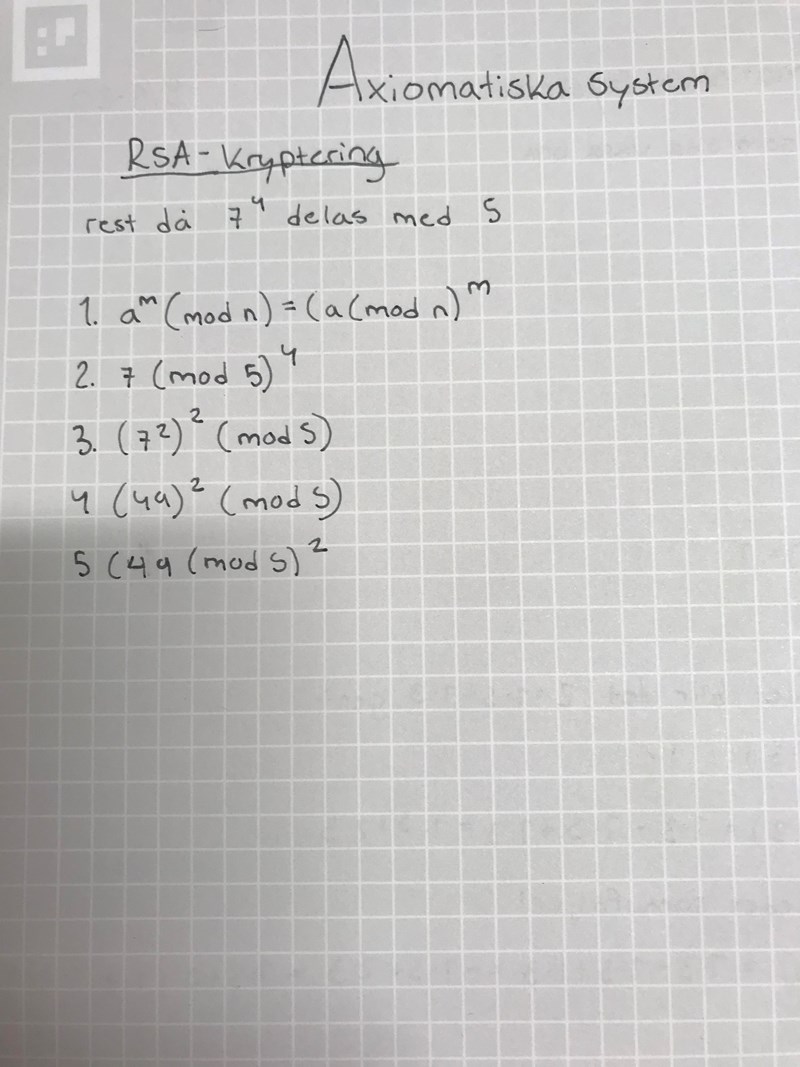 Axiomatiska System
RSA-Kryptering
rest då 7⁴ delas med 5
1. aᵐ (mod n) = (a (mod n)ᵐ
2. 7 (mod 5)⁴
3. (7²)² (mod 5)
4 (49)² (mod 5)
5 (49 (mod 5)²